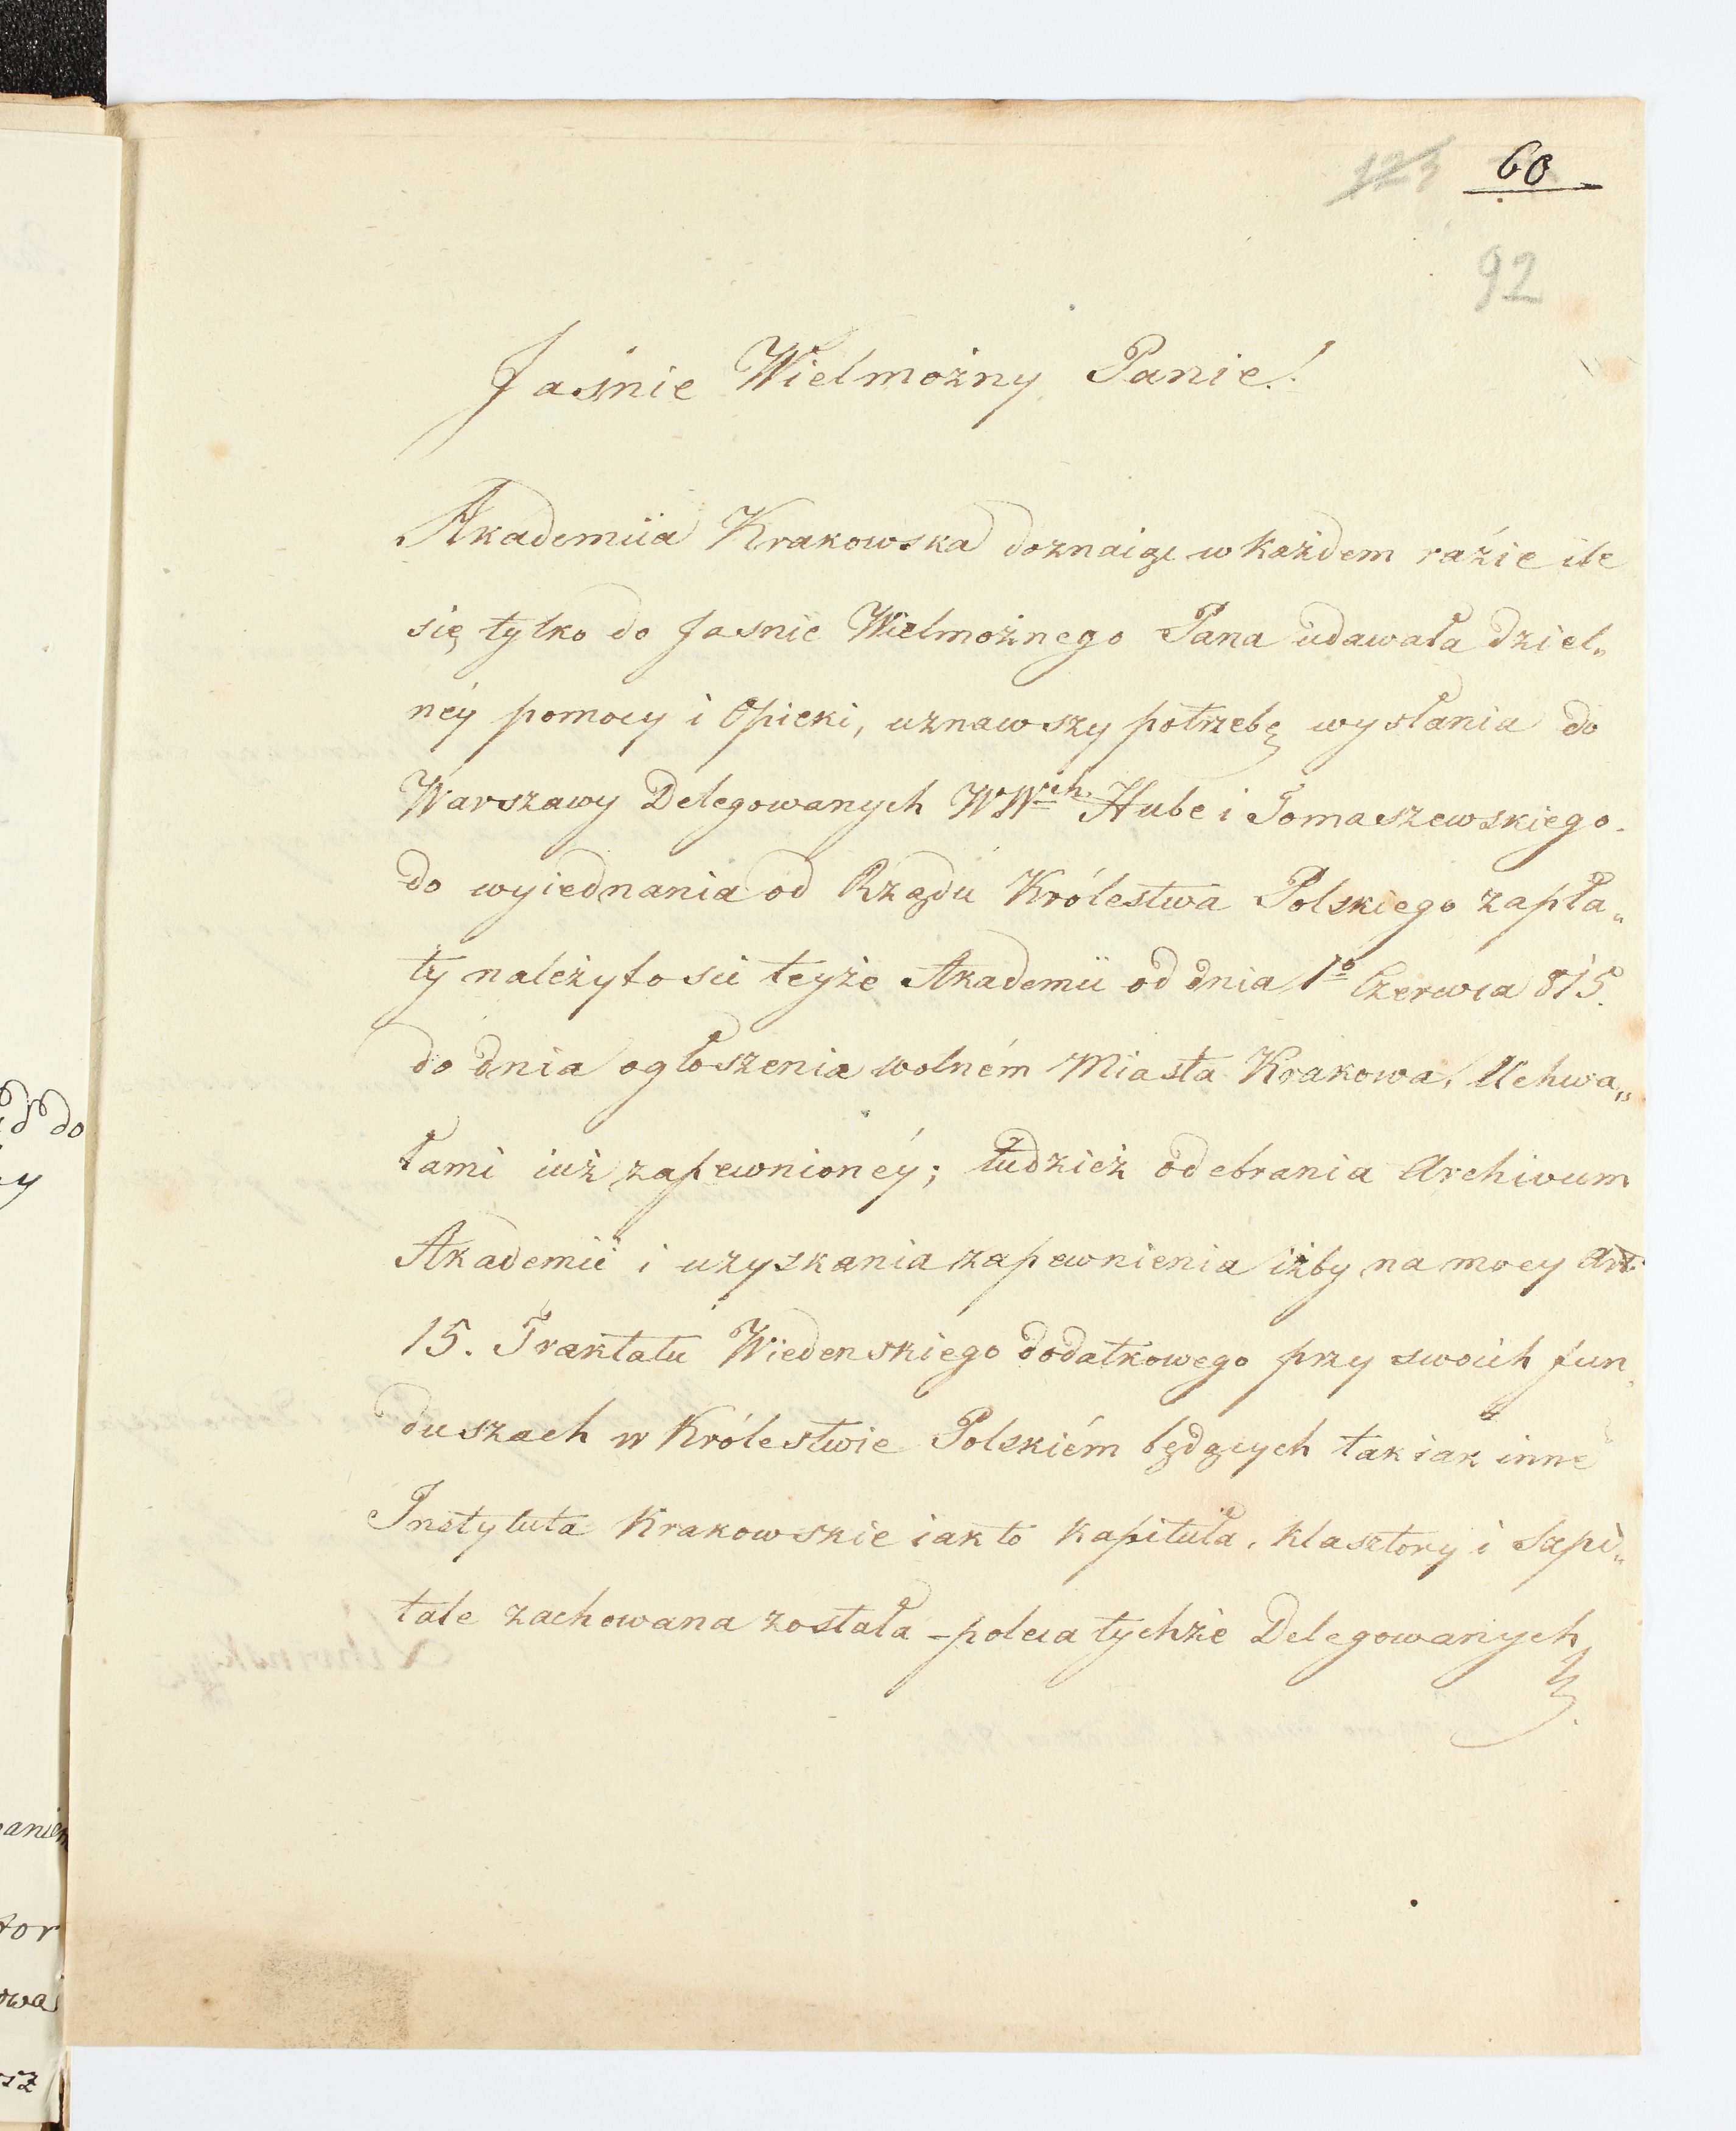 123 60
92
Jaśnie Wielmożny Panie!
Akademiia Krakowska doznaiąc w każdem raźie ile
się tylko do Jasnie Wielmożnego Pana udawała dziel„
néy pomocy i Opieki, uznawszy potrzebę wysłania do
Warszawy Delegowanych WWch. Hube i Tomaszewskiego.
do wyiednania od Rządu Królestwa Polskiego zapła„
ty należytości teyże Akademii od dnia 1o Czerwca 815.
do dnia ogłoszenia wolném Miasta Krakowa, Uchwa„
łami iuż zapewnionéy; tudzież odebrania Archivum
Akademii i uzyskania zapewnienia iżby na mocy Art:
15. Traktatu Wiedenskiego dodatkowego przy swoich fun„
duszach w Królestwie Polskiém będących tak iak inne
Instytuta Krakowskie iak to Kapituła, Klasztory i Szpi„
tale zachowana została – poleca tychże Delegowanych